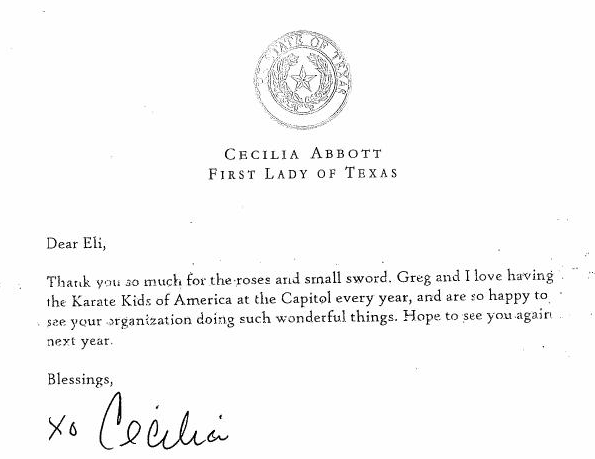 THE STATE OF TEXAS
CECILIA ABBOTT
FIRST LADY OF TEXAS
Dear Eli,
Thank you so much for the roses and small sword. Greg and I love having
the Karate Kids of America at the Capitol every year, and are so happy to
see your organization doing such wonderful things. Hope to see you again
next year.
Blessings,
xo Cecilia